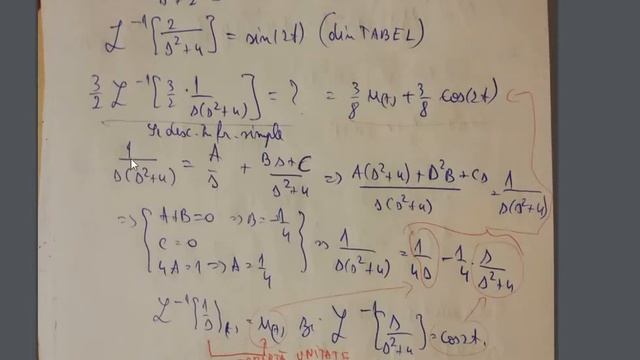 ℒ⁻¹[2/(s²+4)] = sin(2t) (din TABEL)
3/2 ℒ⁻¹[3/2 · 1/(s(s²+4))] = ? = 3/8 u(t) + 3/8 cos(2t)
desc. fr. simple
1/(s(s²+4)) = A/s + (Bs+C)/(s²+4) => (A(s²+4)+s²B+Cs)/(s(s²+4)) = 1/(s(s²+4))
=> { A+B=0 => B=-1/4
C=0
4A=1 => A=1/4
=> 1/(s(s²+4)) = 1/(4s) - 1/4 · s/(s²+4)
ℒ⁻¹[1/s](t) = u(t) și ℒ⁻¹[s/(s²+4)] = cos2t.
UNITATE